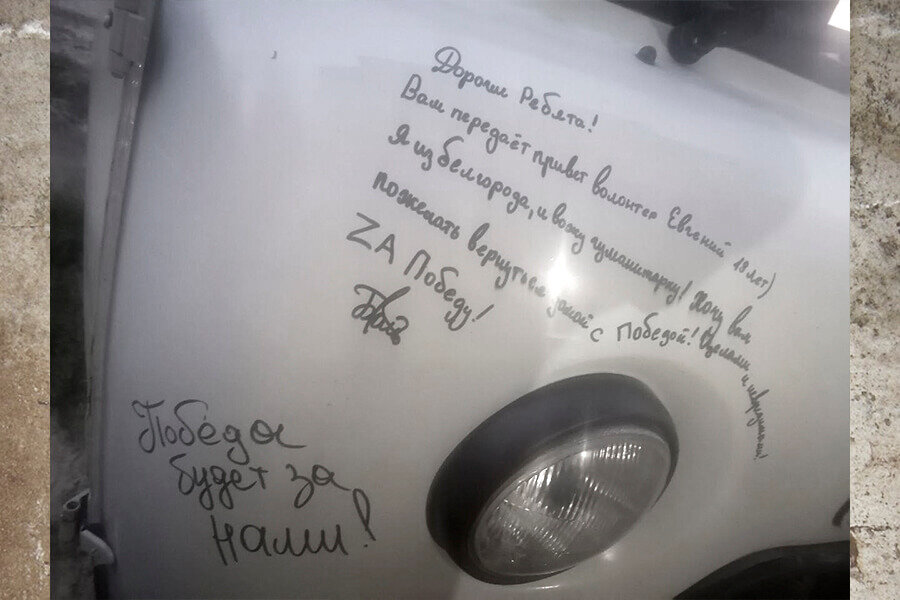 Дорогие Ребята!
Вам передаёт привет волонтер Евгений 18 лет)
Я из белгорода, и вожу гуманитарку! Хочу вам
пожелать вернуться домой с Победой! Целыми и невредимыми!
ZA Победу!
Победа
будет за
нами!